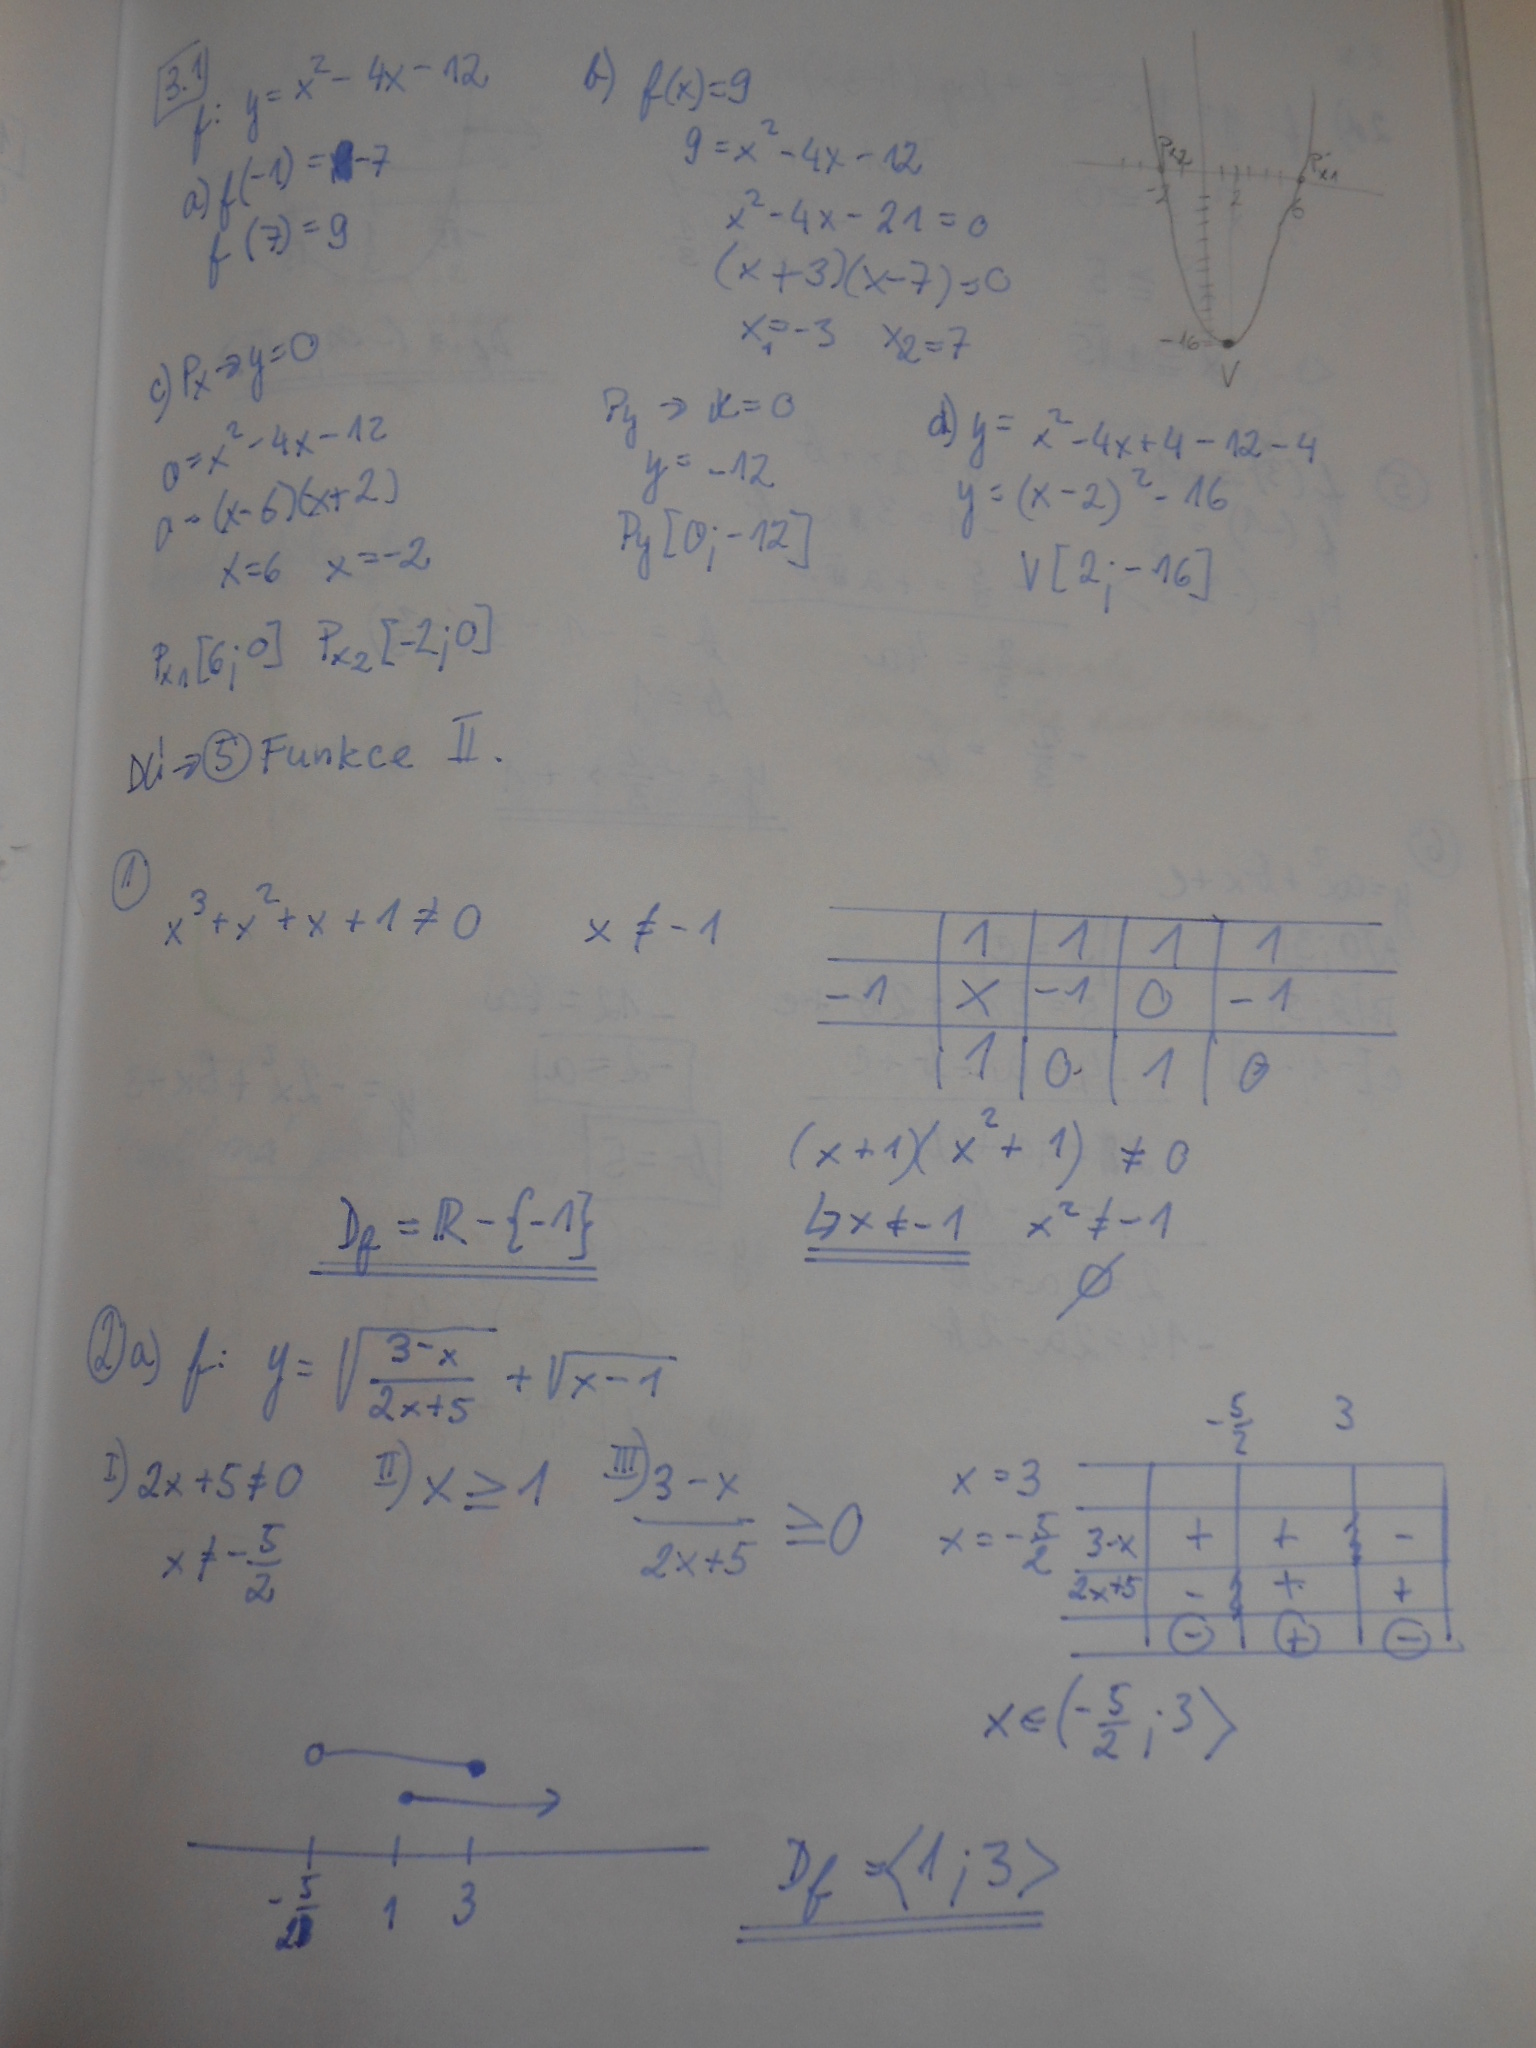 3.1
f: y = x² - 4x - 12
a) f(-1) = -7
f(7) = 9
b) f(x) = 9
9 = x² - 4x - 12
x² - 4x - 21 = 0
(x+3)(x-7) = 0
x₁ = -3 x₂ = 7
Px2 Px1
-2 2 6
-16
V
c) Px → y = 0
0 = x² - 4x - 12
0 = (x-6)(x+2)
x = 6 x = -2
Px1 [6; 0] Px2 [-2; 0]
Py → x = 0
y = -12
Py [0; -12]
d) y = x² - 4x + 4 - 12 - 4
y = (x-2)² - 16
V [2; -16]
DÚ → 5 Funkce II.
1
x³ + x² + x + 1 ≠ 0 x ≠ -1
1 1 1 1
-1 X -1 0 -1
1 0 1 0
(x+1)(x² + 1) ≠ 0
↳ x ≠ -1 x² ≠ -1
∅
Df = ℝ - {-1}
2 a) f: y = √((3-x)/(2x+5)) + √(x-1)
I) 2x + 5 ≠ 0
x ≠ -5/2
II) x ≥ 1
III) (3-x)/(2x+5) ≥ 0
x = 3
x = -5/2
-5/2 3
3-x + + -
2x+5 - + +
- + -
x ∈ (-5/2; 3⟩
1 3
Df = ⟨1; 3⟩